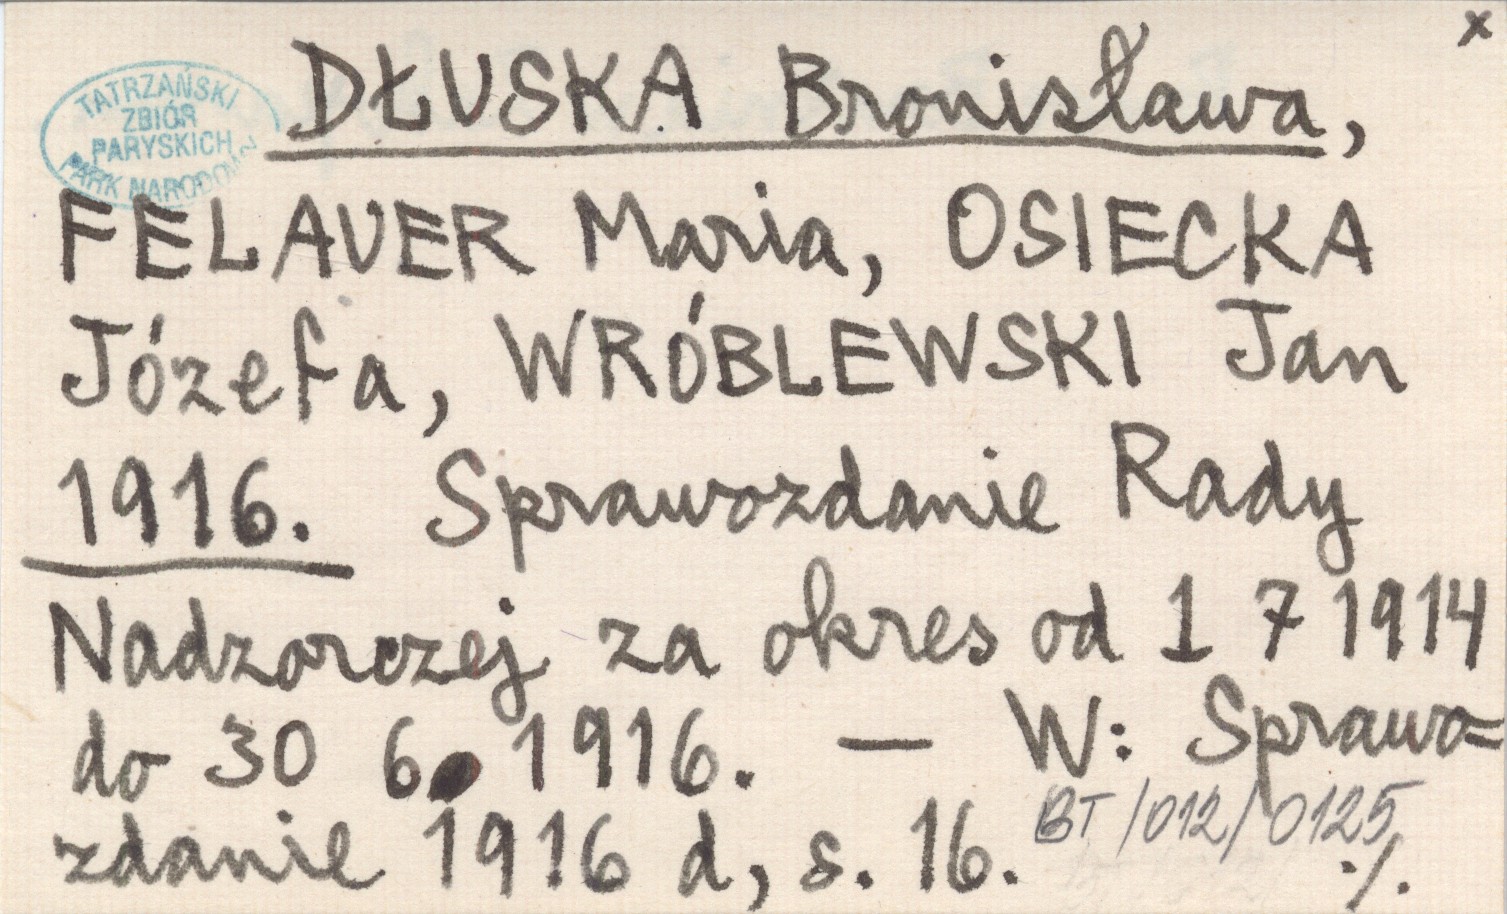 x
DŁUSKA Bronisława,
TATRZAŃSKI
ZBIÓR
PARYSKICH
PARK NARODOWY
FELAUER Maria, OSIECKA
Józefa, WRÓBLEWSKI Jan
1916. Sprawozdanie Rady
Nadzorczej za okres od 1 7 1914
do 30 6 1916. — W: Sprawo=
zdanie 1916 d, s. 16.
BT/012/0125
./.